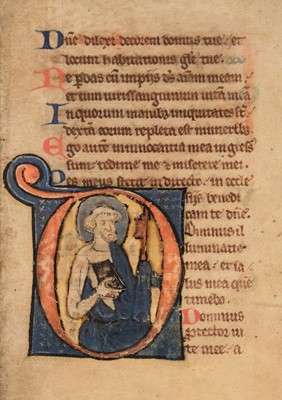 Dñe dilexi decorem domus tue et
locum habitationis gle tue.
Ne perdas cum impijs ds aiam meam
et cum viris sanguinum vitam meā
In quorum manibus iniquitates st
dextra eorum repleta est munerib;
Ego autem in innocentia mea ingres
sum redime me et miserere mei
Pes meus stetit in directo in eccle
sijs benedi
cam te dñe.
Dominus il
luminatio
mea et sa
lus mea quē
timebo.
Dominus
protector vi
te mee a